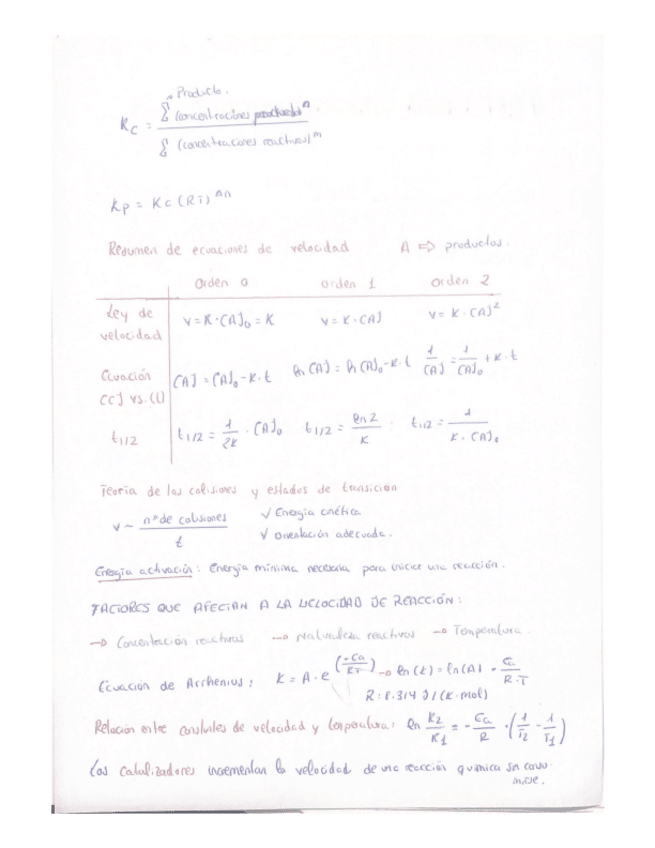 Producto.
Kc = ∏ (concentraciones productos)ⁿ / ∏ (concentraciones reactivos)ᵐ
Kp = Kc (RT)^Δn
Resumen de ecuaciones de velocidad A ⇒ productos.
Orden 0 Orden 1 Orden 2
Ley de velocidad v = K·[A]₀ = K v = K·[A] v = K·[A]²
Ecuación [C] vs. (t) [A] = [A]₀ - K·t ln [A] = ln [A]₀ - K·t 1/[A] = 1/[A]₀ + K·t
t1/2 t1/2 = 1/2K · [A]₀ t1/2 = ln 2/K t1/2 = 1/K·[A]₀
Teoría de las colisiones y estados de transición
v ~ nº de colisiones / t √ Energía cinética
√ Orientación adecuada.
Energía activación: Energía mínima necesaria para iniciar una reacción.
FACTORES QUE AFECTAN A LA VELOCIDAD DE REACCIÓN:
→ Concentración reactivos → Naturaleza reactivos → Temperatura
Ecuación de Arrhenius: K = A·e^(-Ea/RT) → ln (k) = ln (A) - Ea/R·T
R = 8.314 J/(K·mol)
Relación entre constantes de velocidad y temperatura: ln K2/K1 = - Ea/R · (1/T2 - 1/T1)
Los catalizadores incrementan la velocidad de una reacción química sin